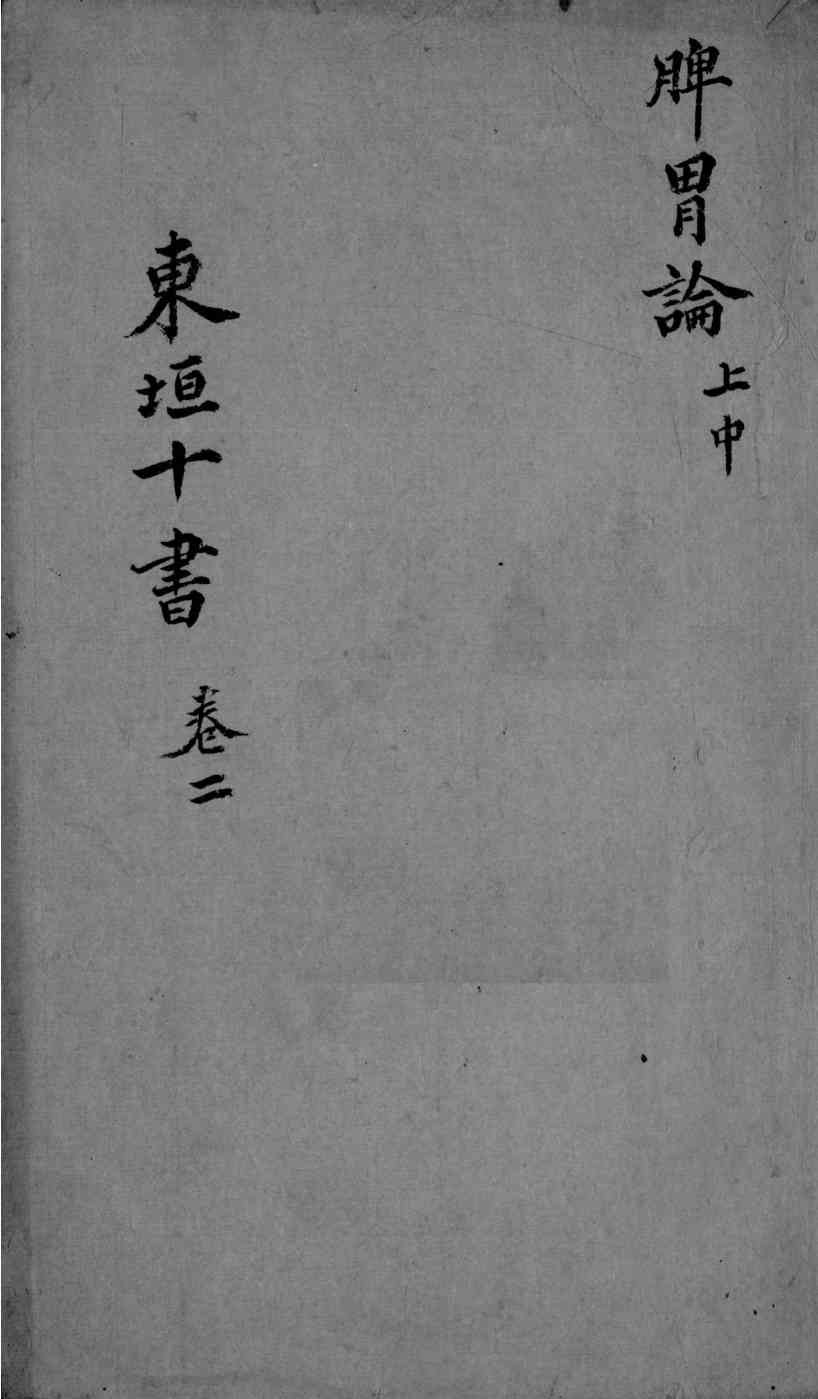 脾胃論上中
東垣十書卷二